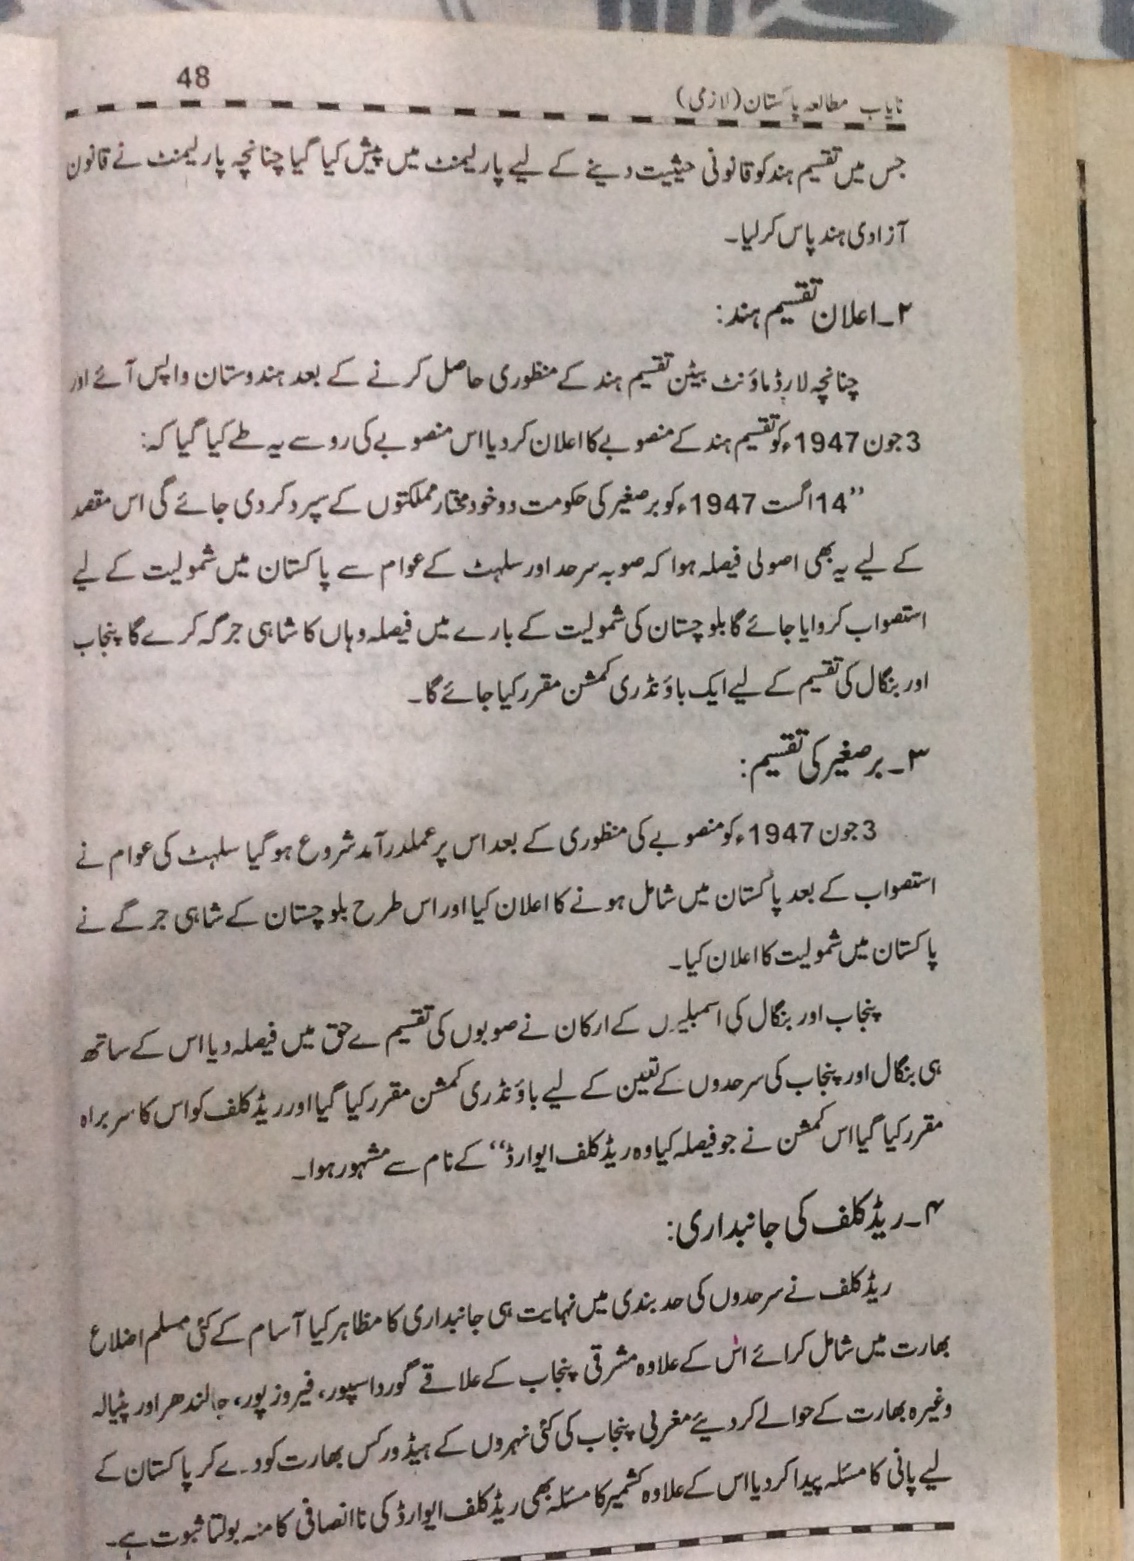 48
نایاب مطالعہ پاکستان (لازمی)
جس میں تقسیم ہند کو قانونی حیثیت دینے کے لیے پارلیمنٹ میں پیش کیا گیا چنانچہ پارلیمنٹ نے قانون
آزادی ہند پاس کر لیا۔
۲۔ اعلان تقسیم ہند:
چنانچہ لارڈ ماؤنٹ بیٹن تقسیم ہند کے منظوری حاصل کرنے کے بعد ہندوستان واپس آئے اور
3 جون 1947ء کو تقسیم ہند کے منصوبے کا اعلان کر دیا اس منصوبے کی رو سے یہ طے کیا گیا کہ:
”14 اگست 1947ء کو برصغیر کی حکومت دو خود مختار مملکتوں کے سپرد کر دی جائے گی اس مقصد
کے لیے یہ بھی اصولی فیصلہ ہوا کہ صوبہ سرحد اور سلہٹ کے عوام سے پاکستان میں شمولیت کے لیے
استصواب کروایا جائے گا بلوچستان کی شمولیت کے بارے میں فیصلہ وہاں کا شاہی جرگہ کرے گا پنجاب
اور بنگال کی تقسیم کے لیے ایک باؤنڈری کمشن مقرر کیا جائے گا۔
۳۔ برصغیر کی تقسیم:
3 جون 1947ء کو منصوبے کی منظوری کے بعد اس پر عملدرآمد شروع ہو گیا سلہٹ کی عوام نے
استصواب کے بعد پاکستان میں شامل ہونے کا اعلان کیا اور اس طرح بلوچستان کے شاہی جرگے نے
پاکستان میں شمولیت کا اعلان کیا۔
پنجاب اور بنگال کی اسمبلیوں کے ارکان نے صوبوں کی تقسیم کے حق میں فیصلہ دیا اس کے ساتھ
ہی بنگال اور پنجاب کی سرحدوں کے تعین کے لیے باؤنڈری کمشن مقرر کیا گیا اور ریڈ کلف کو اس کا سربراہ
مقرر کیا گیا اس کمشن نے جو فیصلہ کیا وہ ریڈ کلف ایوارڈ“ کے نام سے مشہور ہوا۔
۴۔ ریڈ کلف کی جانبداری:
ریڈ کلف نے سرحدوں کی حد بندی میں نہایت ہی جانبداری کا مظاہر کیا آسام کے کئی مسلم اضلاع
بھارت میں شامل کرائے اس کے علاوہ مشرقی پنجاب کے علاقے گورداسپور، فیروز پور، جالندھر اور پٹیالہ
وغیرہ بھارت کے حوالے کر دیئے مغربی پنجاب کی کئی نہروں کے ہیڈ ورکس بھارت کو دے کر پاکستان کے
لیے پانی کا مسئلہ پیدا کر دیا اس کے علاوہ کشمیر کا مسئلہ بھی ریڈ کلف ایوارڈ کی ناانصافی کا منہ بولتا ثبوت ہے۔